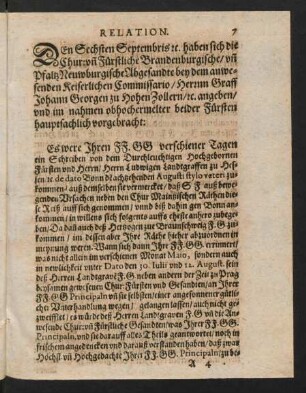 RELATION. 7
DEn Sechsten Septembris ꝛc. haben sich die
Chur: vñ Fürstliche Brandenburgische/ vñ
Pfaltz Newburgische Abgesandte bey dem anwe-
senden Keiserlichen Commissario/ Herrn Graff
Johann Georgen zu Hohen Zollern/ ꝛc. angeben/
vnd im nahmen obhochermelter beider Fürsten
hauptsachlich vorgebracht:
Es were Ihren FF. GG verschiener Tagen
ein Schreiben von dem Durchleuchtigen Hochgebornen
Fürsten vnd Herrn/ Herrn Ludwigen Landtgraffen zu Hes-
sen/ ꝛc. de dato Bonn dẽ achtzehenden Augusti stylo vet. zu-
kommen/ auß demselben sie vermercket/ daß S F auß bewe-
genden Vrsachen neben den Chur Mainzischen Räthen die-
se Reiß auff sich genommen/ vnd biß dahin gen Bonn an-
kommen/ in willens sich folgents auffs ehest anhero zubege-
ben. Da daß auch deß Hertzogen zu Braunschweig F. G an-
kommen/ im dessen aber Ihre Räthe hieher abzuordnen im
vrsprung weren. Wann sich dann Ihre FF. GG. erinnert/
was nicht allein im verschienen Monat Maio, sondern auch
in newlichkeit vnter Dato den 30. Iulii vnd 12. August. sein
deß Herren Landgraven F. G. neben andern der Zeit zu Prag
beysamen gewesenen Chur: Fürsten vnd Gesandten/ an Ihrer
FF. GG Principaln vñ sie selbsten/ einer angesonnener güt-
licher Vnterhandlung wegen/ gelangen lassen/ auch nicht ge-
zweiffelt/ es würde deß Herren Landgraven F. G vnd die An-
wesende Chur: vñ Fürstliche Gesandten/ was Ihrer FF. GG.
Principaln, vnd sie darauff alles Theils geantwortet/ noch in
frischem angedencken vnd darauß verstanden haben/ daß zwar
Höchst vñ Hochgedachte Ihrer FF. GG. Principaln/ zu be-
A 4